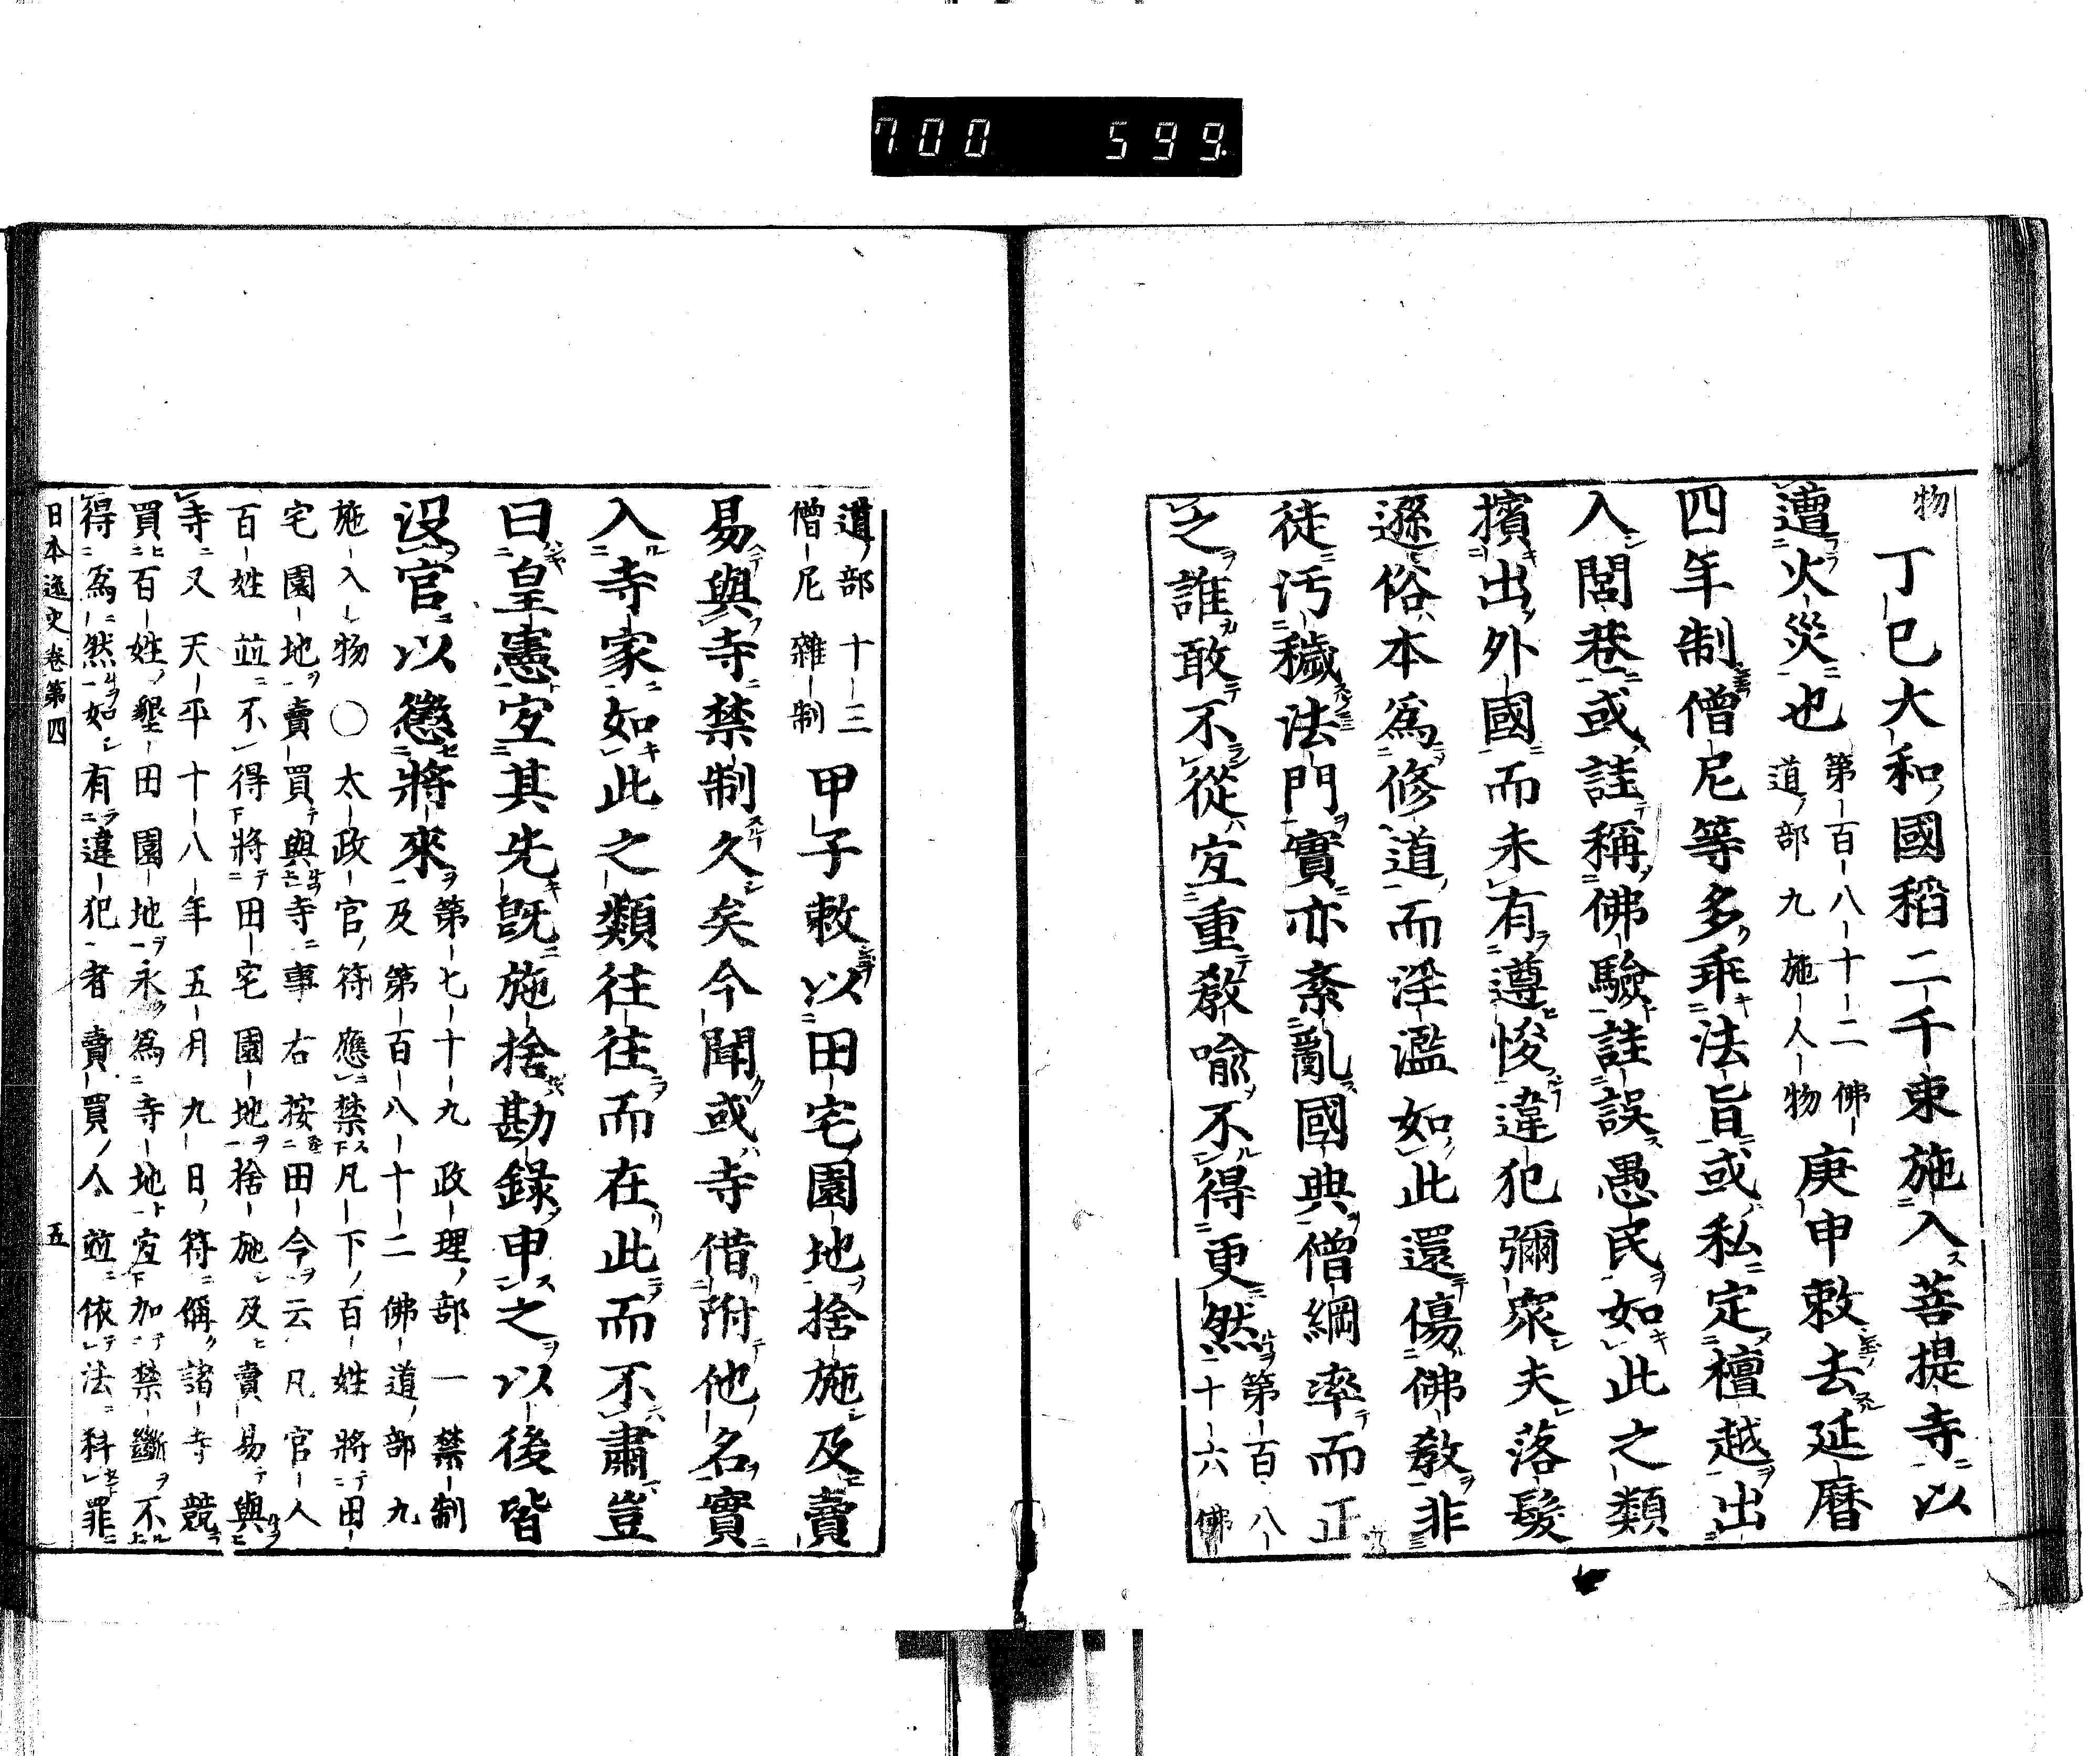 700 599
物丁巳大和國稻二千束施入菩提寺以
遭火災也第百八十二佛
道部九施人物庚申敕去延曆
四年制僧尼等多乖法旨或私定檀越出
入閭巷或詿稱佛驗詿誤愚民如此之類
擯出外國而未有遵悛違犯彌衆夫落髮
遜俗本為修道而淫濫如此還傷佛教非
徒汚穢法門實亦紊亂國典僧綱率而正
之誰敢不從宜重敎喩不得更然第百八
十六佛
道部十三
僧尼雜制甲子敕以田宅園地捨施及賣
易與寺禁制久矣今聞或寺借附他名實
入寺家如此之類往往而在此而不肅豈
曰皇憲宜其先旣施捨勘錄申之以後皆
沒官以懲將來第七十九政理部一禁制
及第百八十二佛道部九
施入物○太政官符應禁凡下百姓將田
宅園地賣買與寺事右按田令云凡官人
百姓並不得將田宅園地捨施及賣易與
寺又天平十八年五月九日符偁諸寺競
買百姓墾田園地永為寺地宜加禁斷不
得為然如有違犯者賣買人並依法科罪
日本逸史卷第四 五